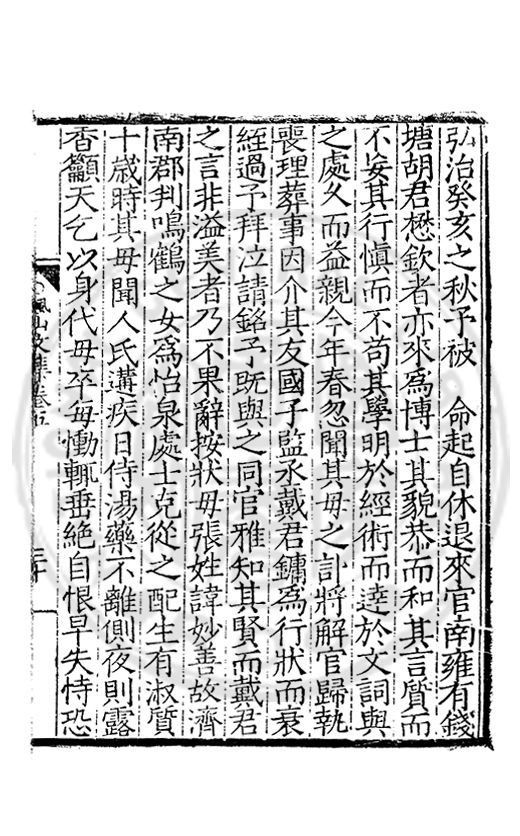 弘治癸亥之秋予被　命起自休退來官南雍有錢
塘胡君懋欽者亦來為博士其貌恭而和其言質而
不妄其行愼而不苟其學明於經術而逹於文詞與
之處久而益親今年春忽聞其母之訃將解官歸執
喪理葬事因介其友國子監丞戴君鏞為行狀而衰
絰過予拜泣請銘予旣與之同官雅知其賢而戴君
之言非溢美者乃不果辭按狀母張姓諱妙善故濟
南郡判鳴鶴之女為怡泉處士克從之配生有淑質
十歲時其母聞人氏遘疾日侍湯藥不離側夜則露
香籲天乞以身代母卒毎慟輒垂絶自恨早失恃恐
楓山文集卷五